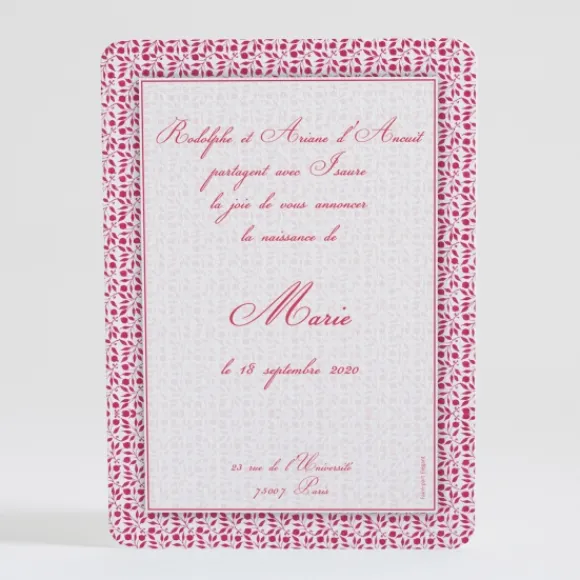 Rodolphe et Ariane d'Ancuit
partagent avec Isaure
la joie de vous annoncer
la naissance de
Marie
le 18 septembre 2020
23 rue de l'Université
75007 Paris